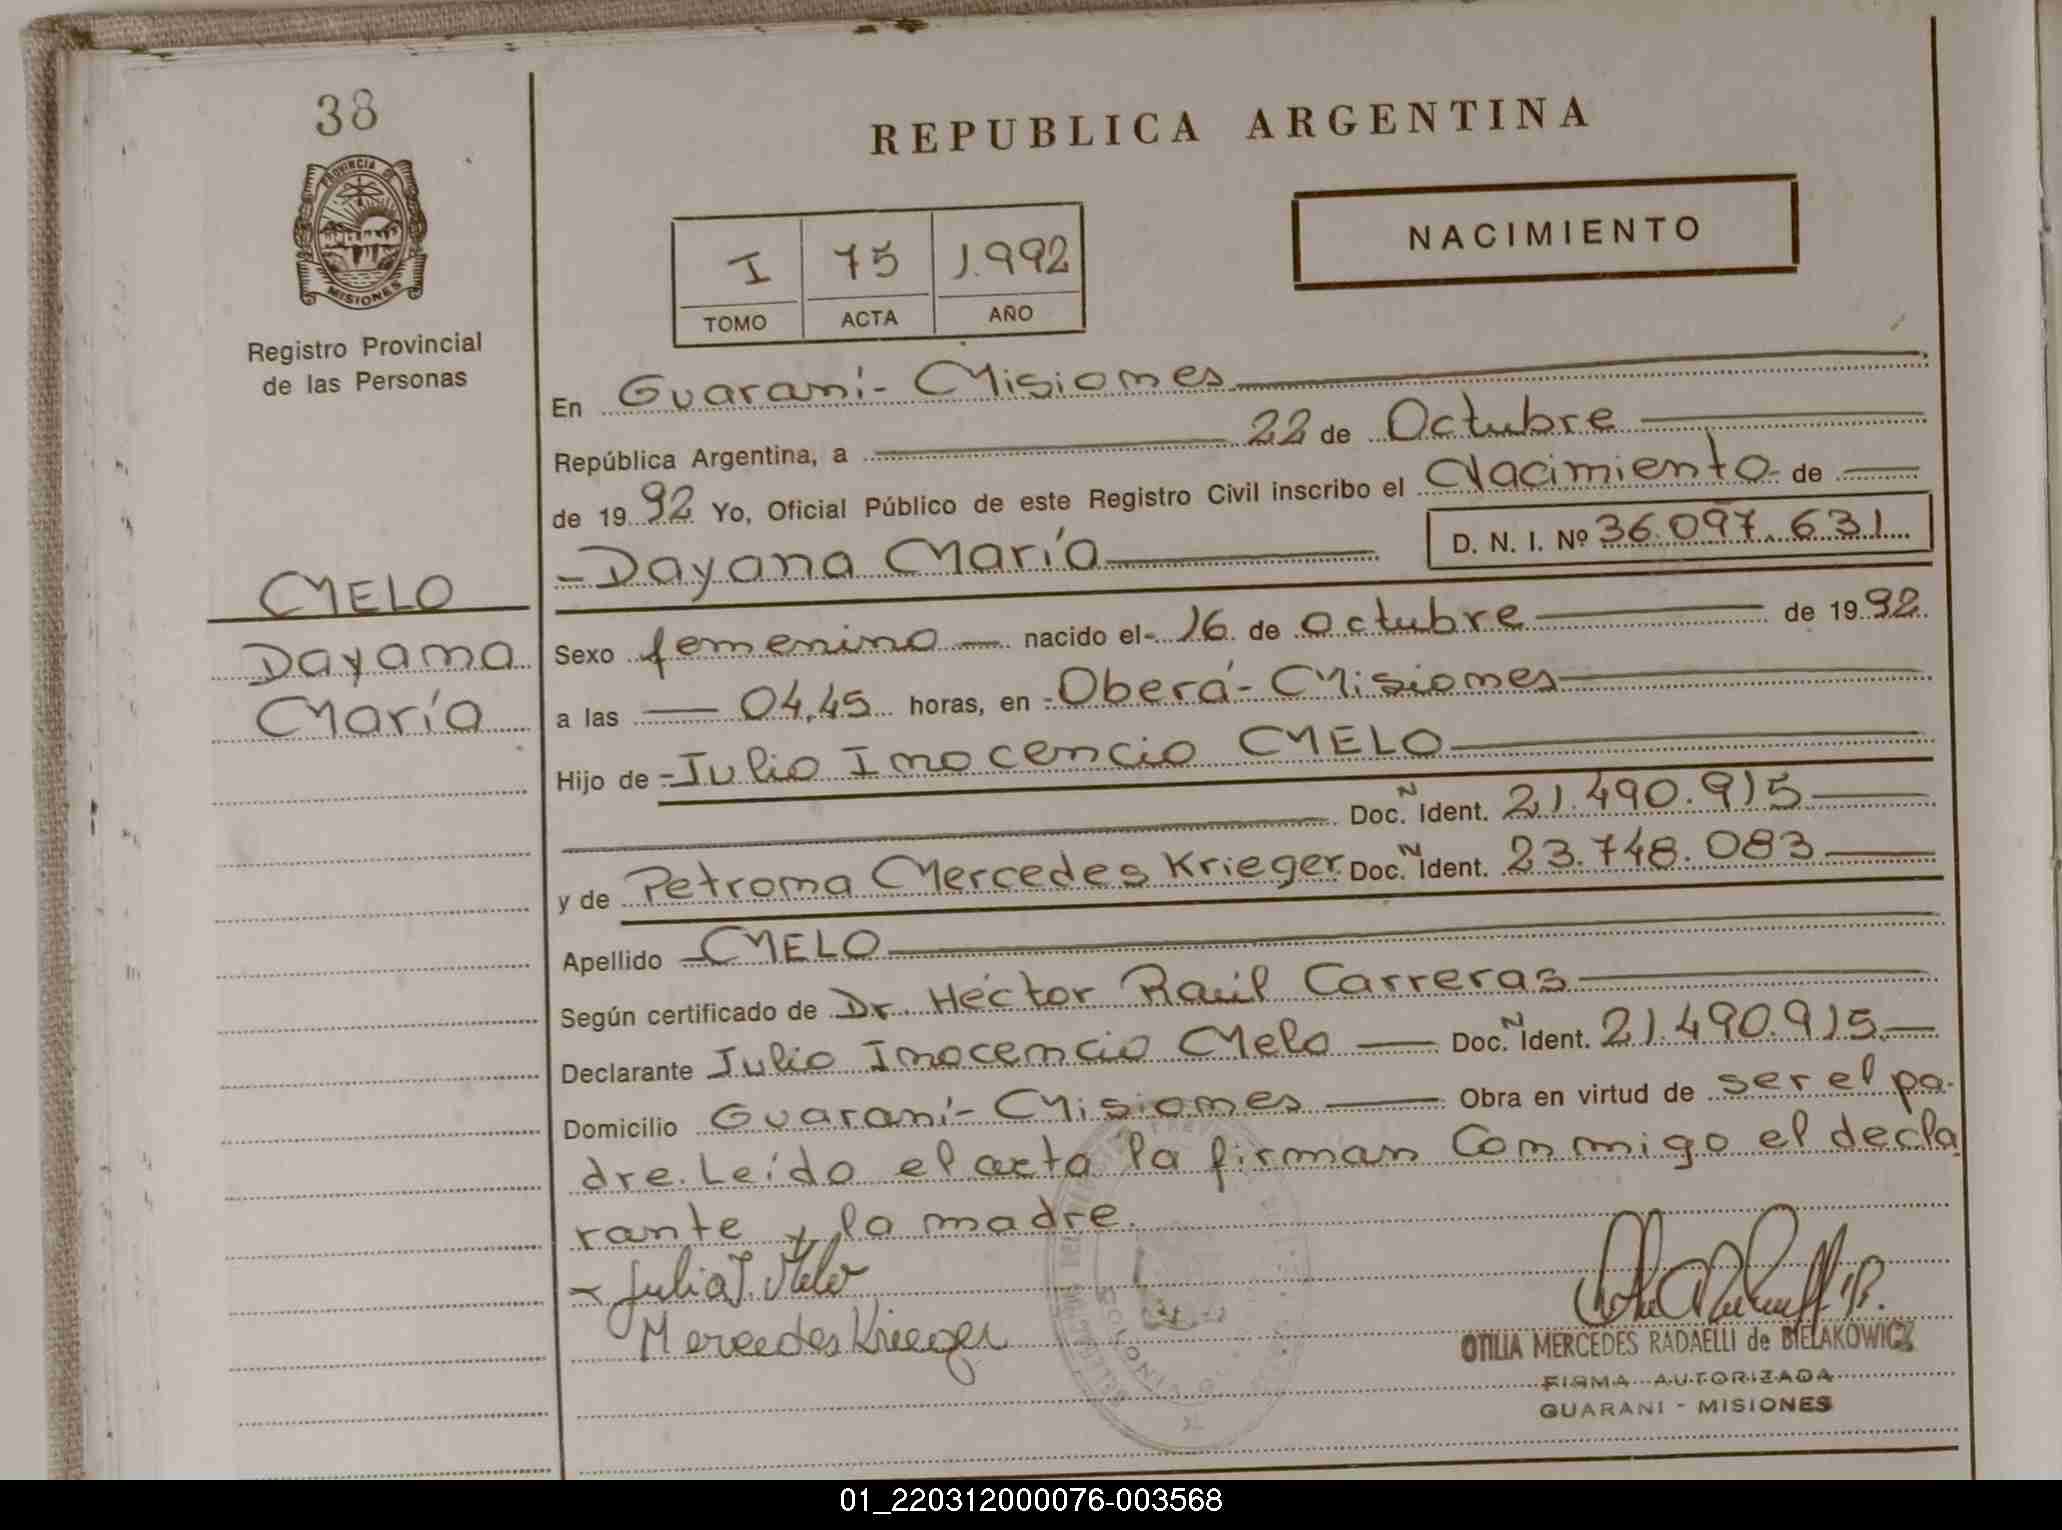 38
PROVINCIA DE
MISIONES
Registro Provincial
de las Personas
MELO
Dayana
María
REPUBLICA ARGENTINA
NACIMIENTO
I 75 1.992
TOMO ACTA AÑO
En Guaraní- Misiones
República Argentina, a 22 de Octubre
de 1992 Yo, Oficial Público de este Registro Civil inscribo el Nacimiento de
-Dayana María D. N. I. Nº 36.097.631
Sexo femenino nacido el- 16 de octubre de 1992
a las 04,45 horas, en -Oberá- Misiones
Hijo de -Julio Inocencio MELO
Doc. N Ident. 21.490.915
y de Petrona Mercedes Krieger Doc. N Ident. 23.748.083
Apellido -MELO
Según certificado de Dr. Héctor Raúl Carreras
Declarante Julio Inocencio Melo Doc. N Ident. 21.490.915
Domicilio Guaraní- Misiones Obra en virtud de ser el pa-
dre. Leído el acta la firman conmigo el decla
rante y la madre.
Julio I. Melo
Mercedes Krieger
OTILIA MERCEDES RADAELLI de BIELAKOWICZ
FIRMA AUTORIZADA
GUARANI - MISIONES
01_220312000076-003568